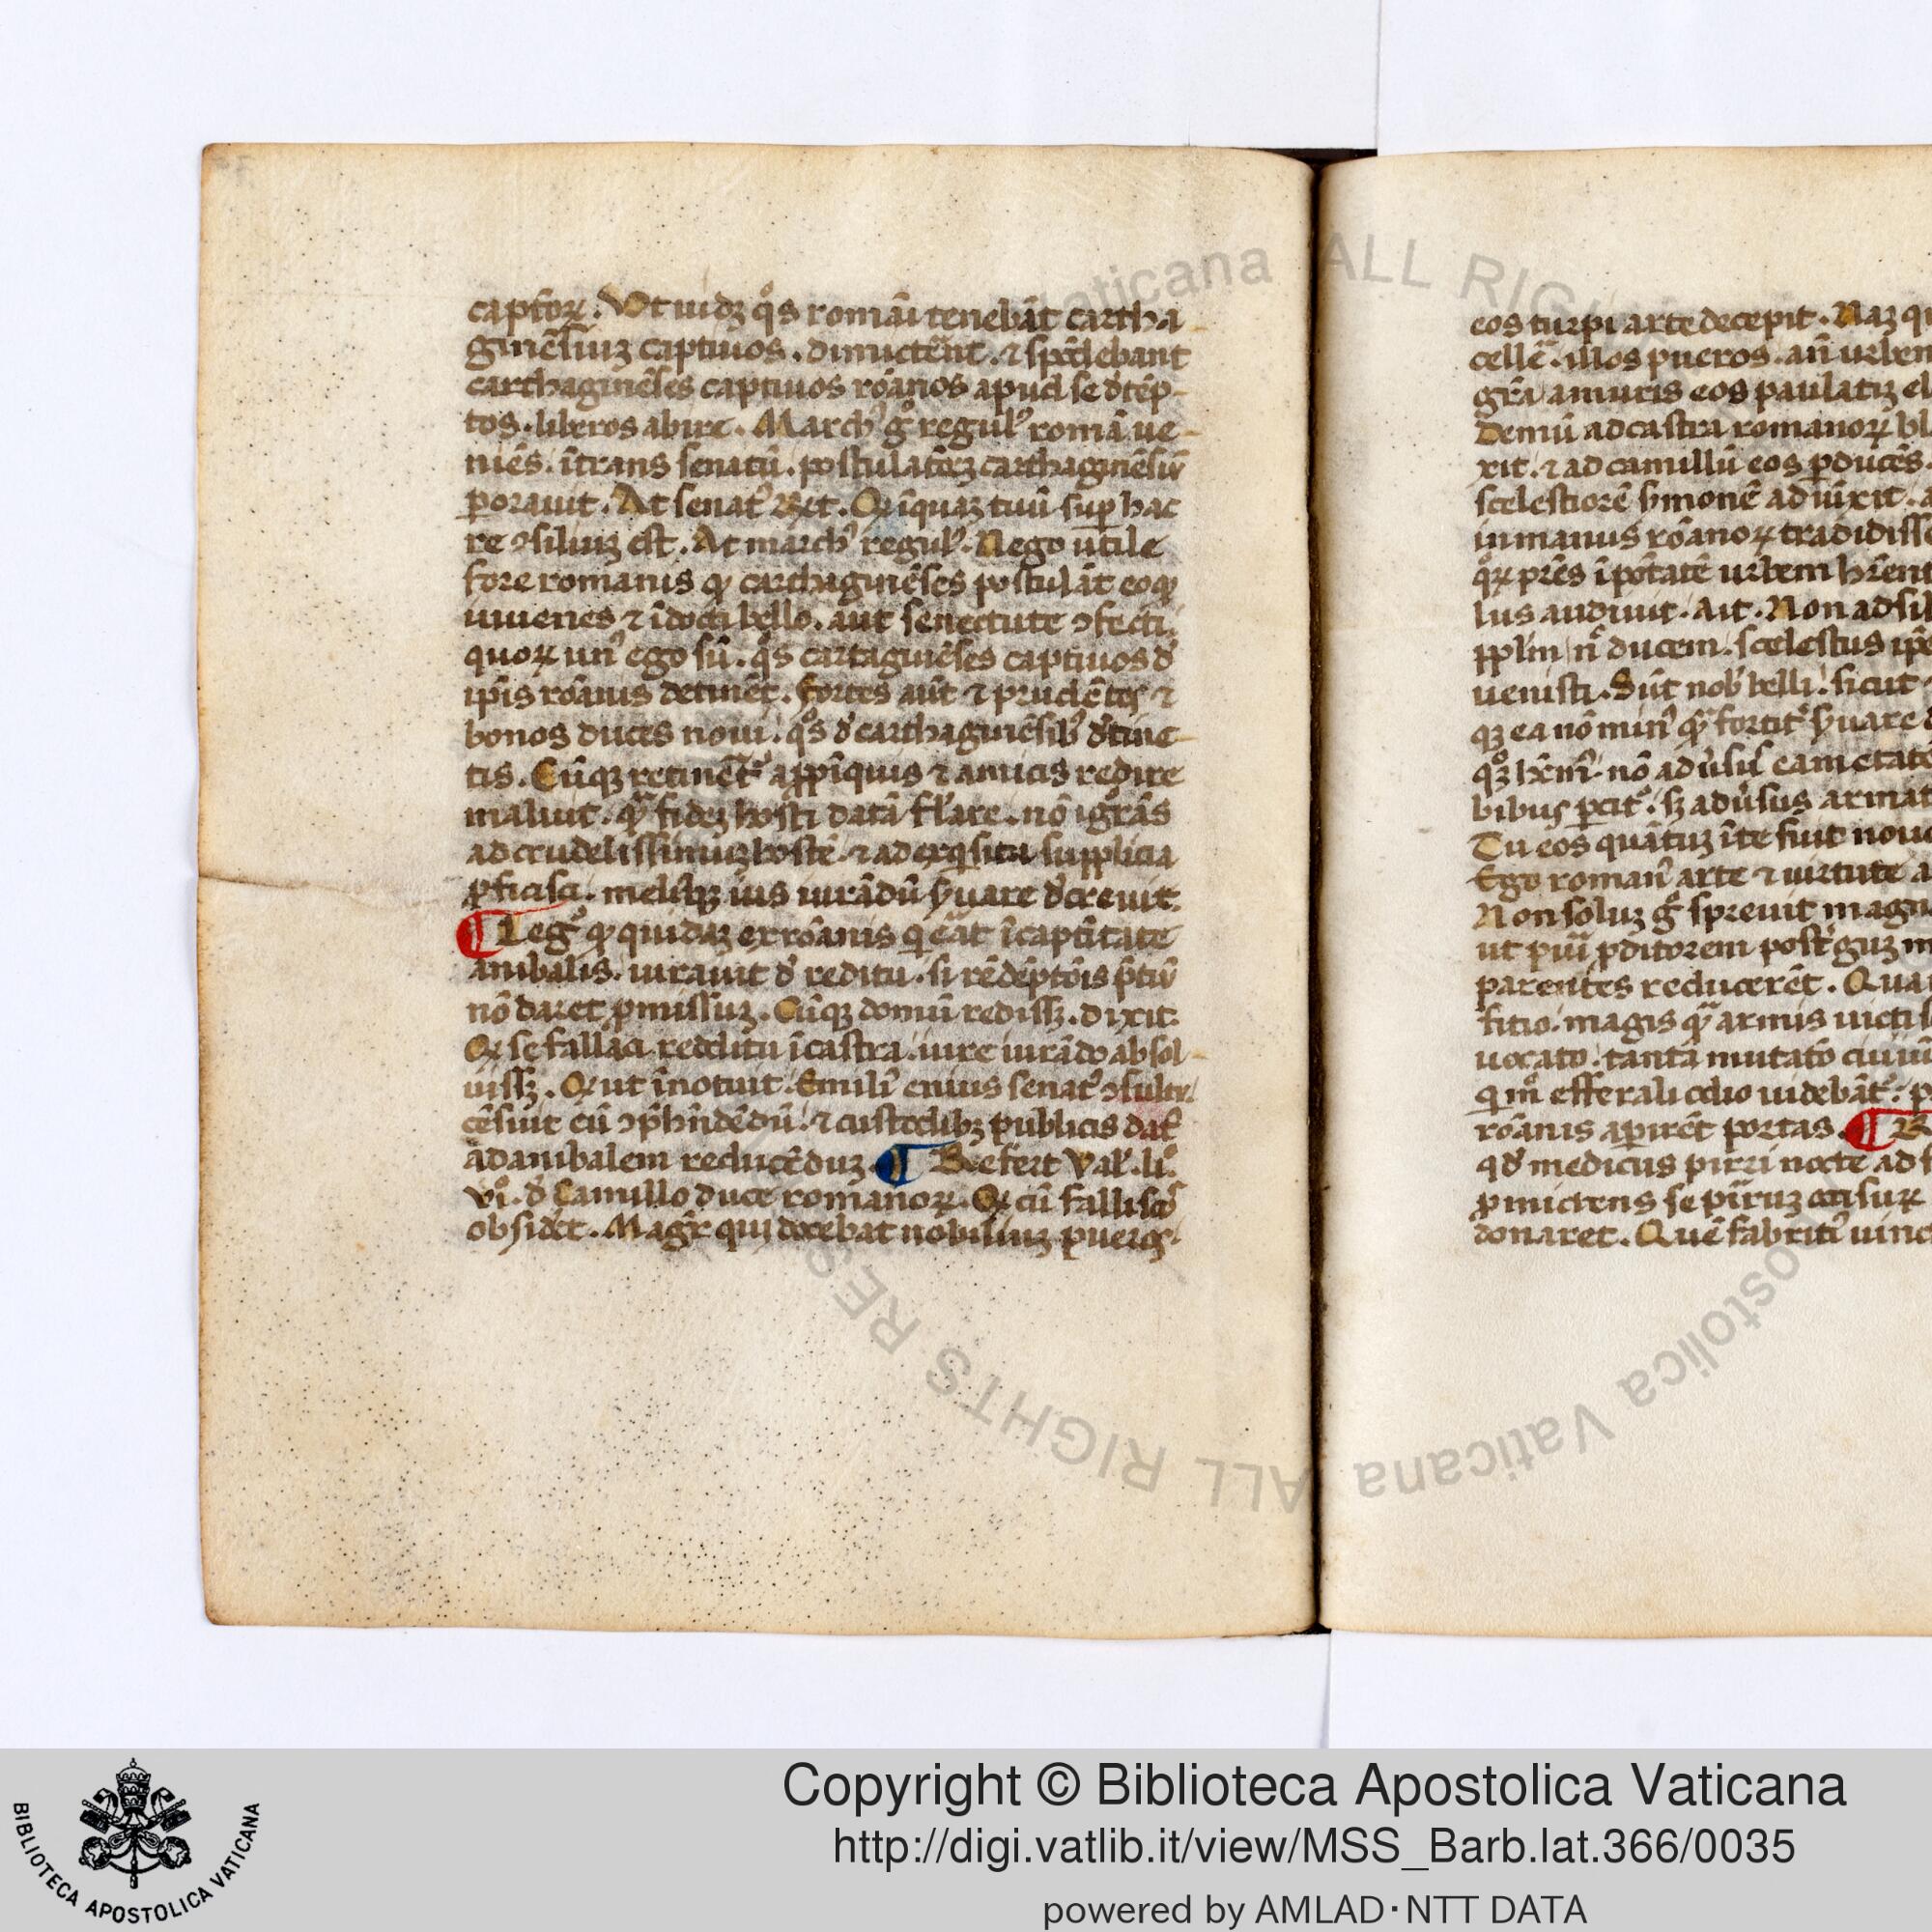 captoꝝ. Vt uidꝫ qͦs romāi tenebāt cartha
ginēsiuꝫ captiuos. dimictēnt. ⁊ spōdebant
carthaginēses captiuos rōanos apud se dētēp-
tos. liberos abire. Marchꝰ gͦ regulꝰ romā ue-
niēs. ītrans senatū. postulatōeꝫ carthaginēsiū
ꝑorauit. At senatꝰ
re ↄsiliuꝫ est. At marchꝰ regulꝰ. Nego utile
fore romanis ꝙ carthaginēses postulāt eoꝙ
iuuenes ⁊ īdocti bello. aut senectute ↄfecti.
quoꝝ unꝰ ego sū. qͦs cartaginēses captiuos d̄
ip̄is rōanis detinēt. Fortes aūt ⁊ prudētes ⁊
bonos duces noui. qͦs d̄ carthaginēsibꝰ d̄tine-
tis. Cūqꝫ retinēt᷑ a ꝓpīquis ⁊ amicis redire
maluit. fideꝫ hosti datā fl̄are. nō igrās
ad crudelissimuꝫ hostē. ⁊ ad exqͥsita supplicia
ꝓficisci. ius iurādū ẜuare d̄creuit.
¶ Legͥ᷑ ꝙ quidaꝫ ex rōanis qͥ eāt ī captītate
anibalis. iurauit d̄ reditu. si rēdēptōis p̄tiū
nō daret ꝓmissuꝫ. Cūqꝫ domū redissꝫ. dixit.
Qꝫ se fallaci redditu ī castra. iure iurādo absol-
uissꝫ. Qꝫ ut īnotuit. Emiliꝰ enius senatꝰ
cēsuit eū ↄp̄hn̄dēdū. ⁊ custodibꝫ publicis
ad anibalem reducēduꝫ. ¶ Refert Val'. li.
vi. d̄ Camillo duce romanoꝝ. Qꝫ cū fallisco
obsidēt. Magr̄ qui docebat nobiliuꝫ pueros.
eos turpi arte decepit. Naꝫ
cellē. illos pueros. an̄ urbem
grā a muris eos paulatiꝫ
Demū ad castra romanoꝝ
xit. ⁊ ad camillū eos ꝑducēs.
scelestiorē ẜmonē adiūxit.
in manus rōanoꝝ tradidisse
qͦꝝ pr̄es ī pōtatē urbem hr̄ent
lus audiuit. Ait. Non ad
ppl̄m nͨ ducem. scelestus
uenisti. Sūt nob̄ belli. sicut
qꝫ ea nō minꝰ fortit᷑ ẜuare
nō aduersus eam etatē
bibus ꝑcit᷑. sꝫ aduersus
Tu eos quātuꝫ ī te fuit
Ego romanꝰ arte ⁊ uirtute
Non soluꝫ gͦ spreuit
ut ꝓditorem
parentes reducerēt.
magis armis uicti
uocato. tanta mutatō
odio uidebāt᷑.
rōanis apirēt portas. ¶
qd̄ medicus pirri nocte ad
ꝓmictens se pirruꝫ occisuꝝ
donaret. Quē fabritiꝰ
Copyright © Biblioteca Apostolica Vaticana
http://digi.vatlib.it/view/MSS_Barb.lat.366/0035
powered by AMLAD·NTT DATA
BIBLIOTECA APOSTOLICA VATICANA